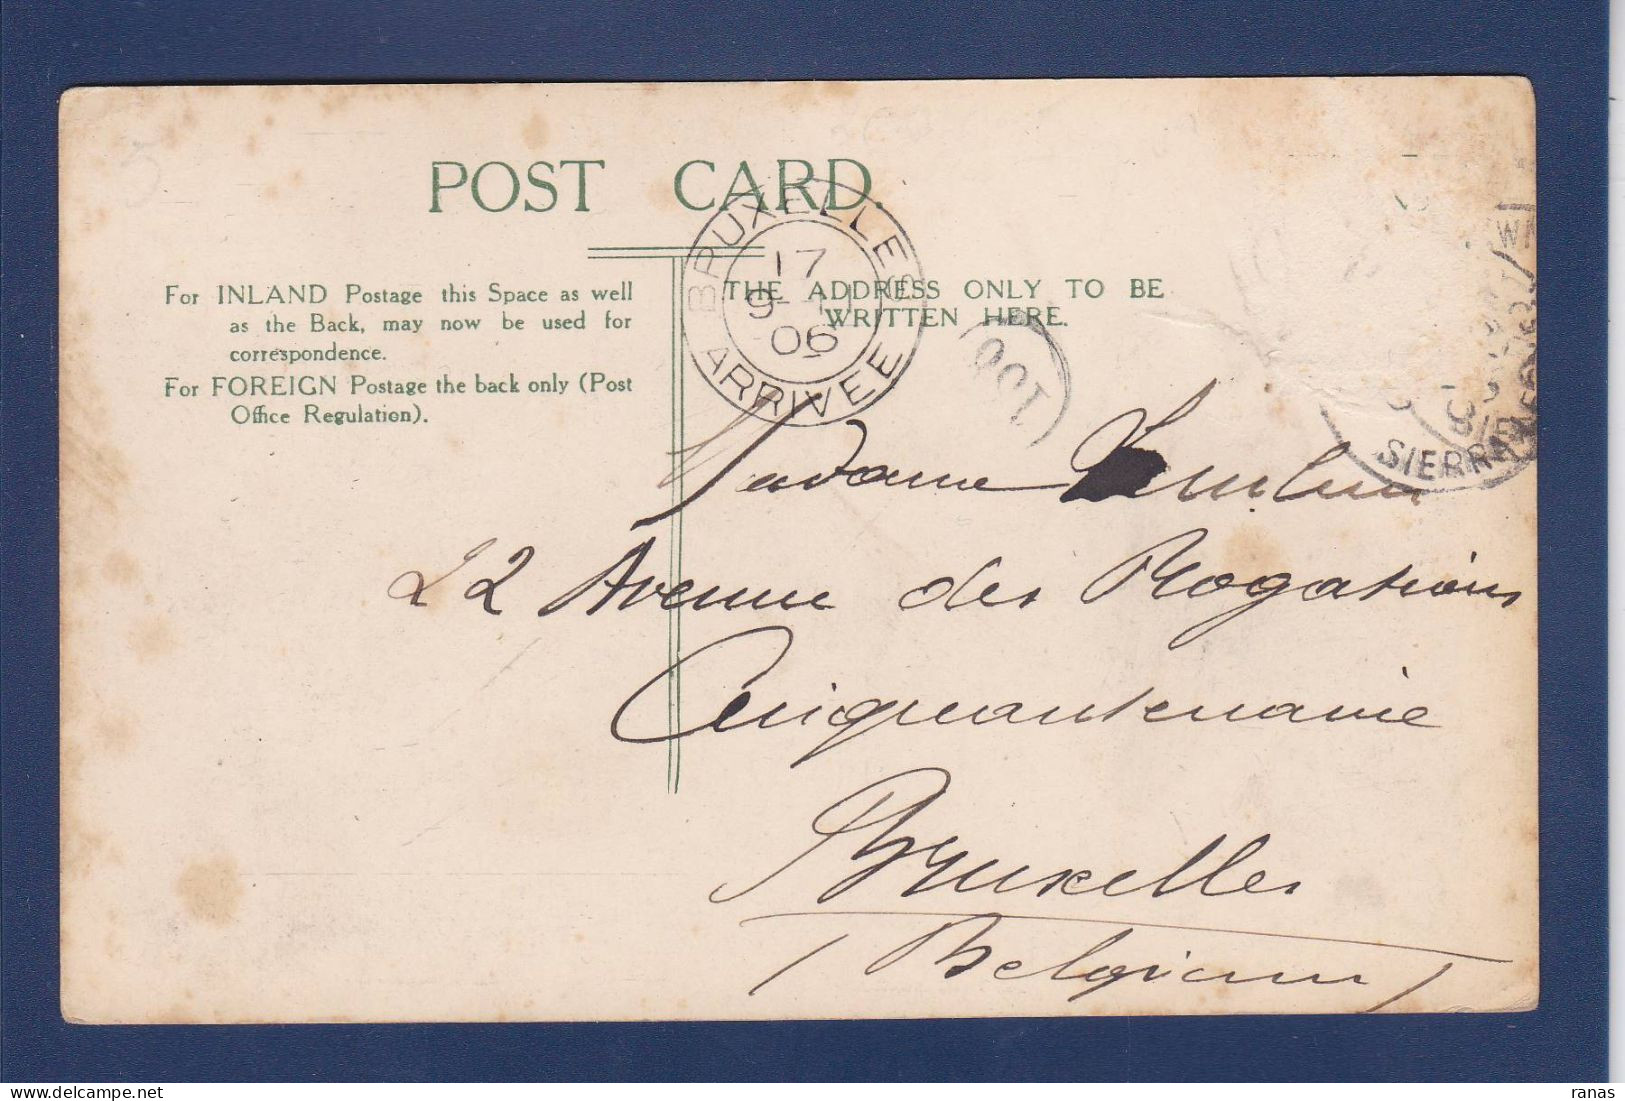 POST CARD.
BRUXELLES
17
9-
06
ARRIVEE
For INLAND Postage this Space as well
as the Back, may now be used for
correspondence.
For FOREIGN Postage the back only (Post
Office Regulation).
THE ADDRESS ONLY TO BE
WRITTEN HERE.
100
SIERRA
Madame
22 Avenue des Rogations
Cinquantenaire
Bruxelles
(Belgium)
ranas